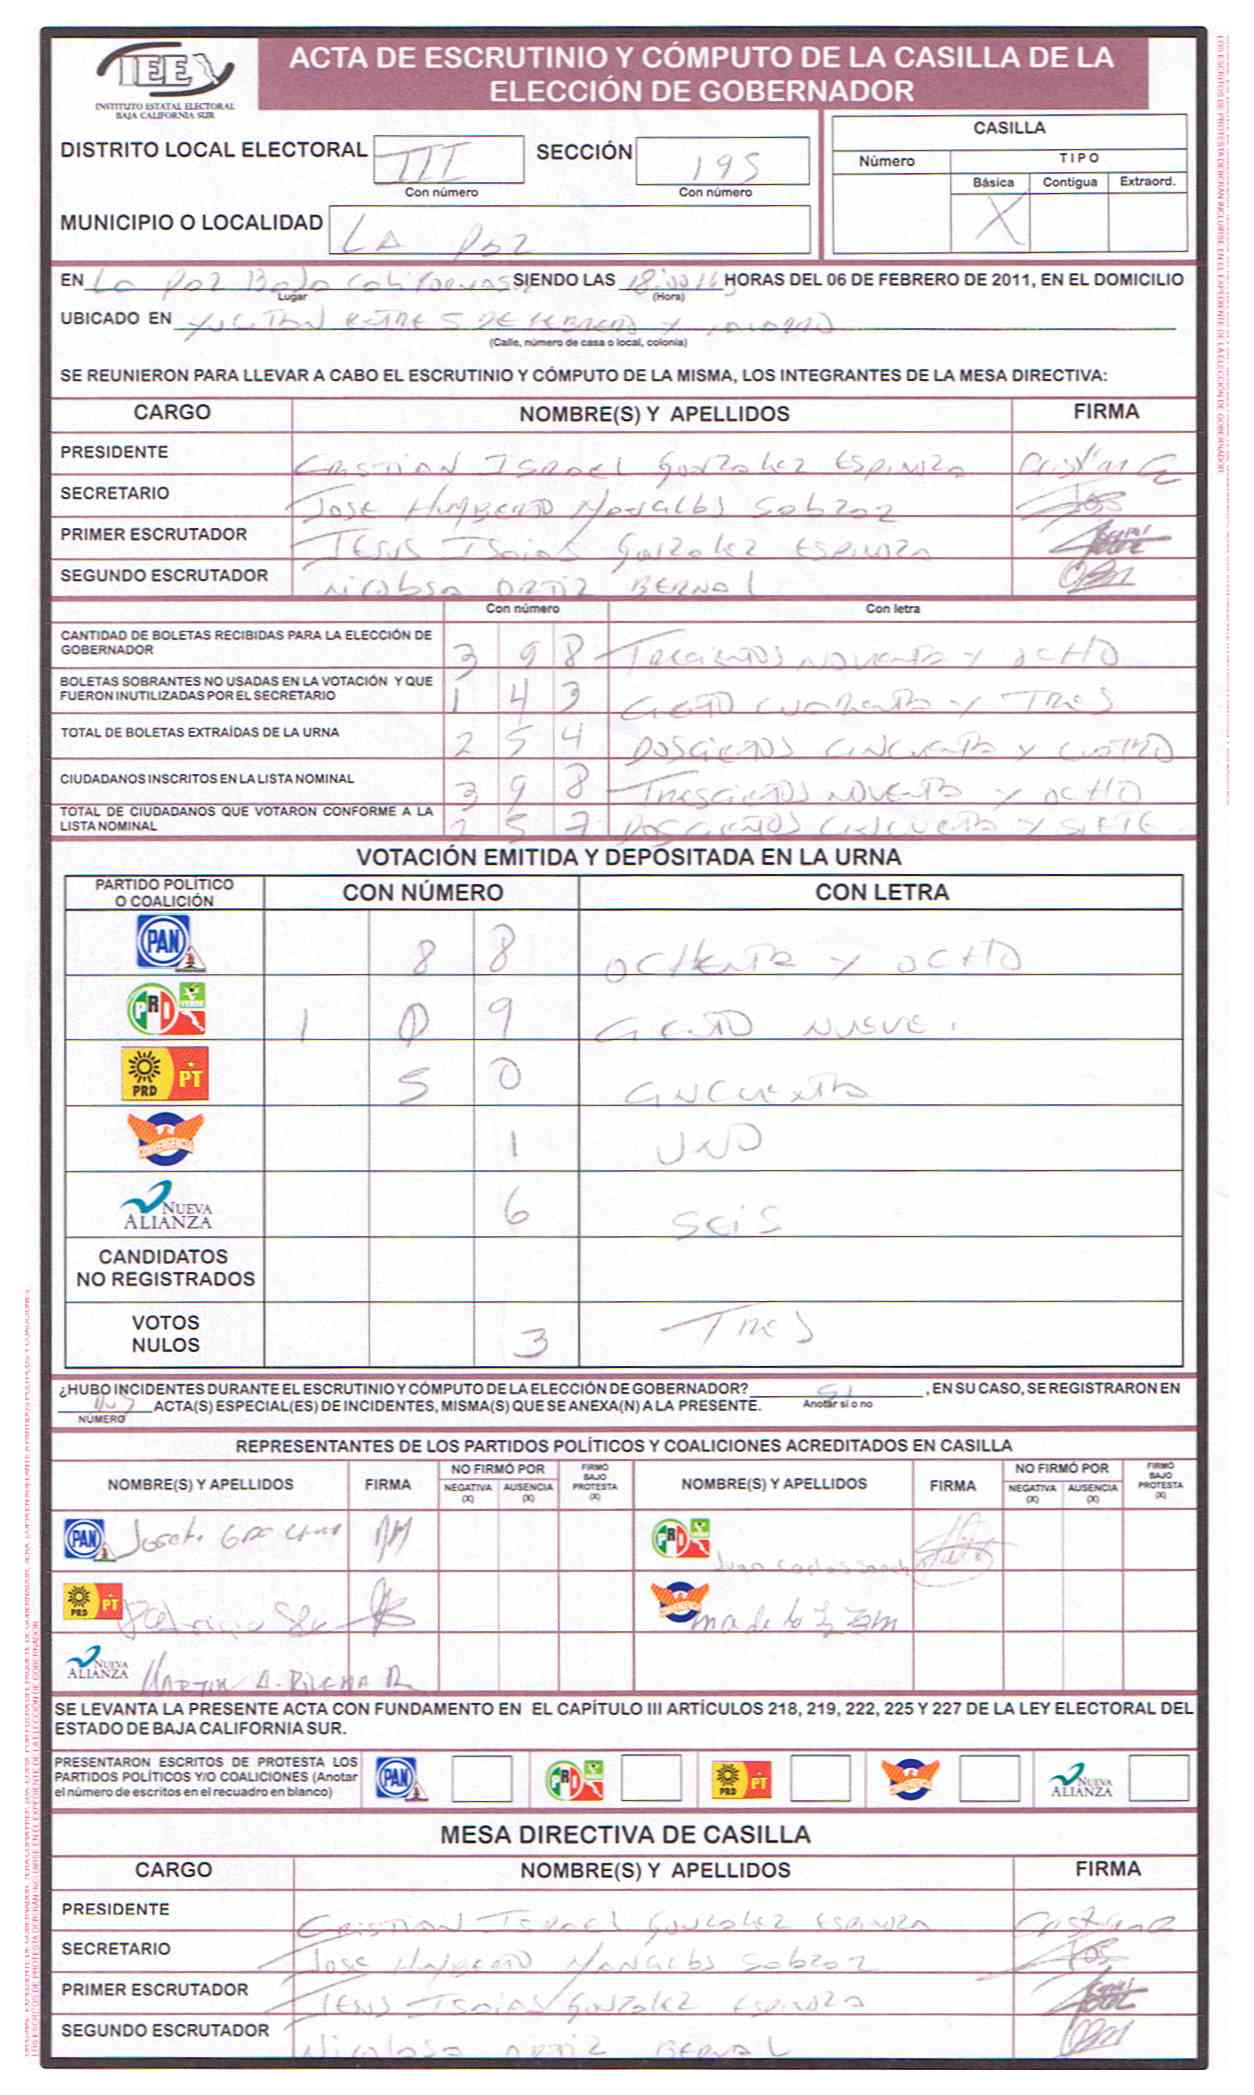 IEE
INSTITUTO ESTATAL ELECTORAL
BAJA CALIFORNIA SUR
ACTA DE ESCRUTINIO Y CÓMPUTO DE LA CASILLA DE LA
ELECCIÓN DE GOBERNADOR
DISTRITO LOCAL ELECTORAL III SECCIÓN 195
Con número Con número
MUNICIPIO O LOCALIDAD LA PAZ
CASILLA
Número TIPO
Básica Contigua Extraord.
X
EN La Paz Baja California S SIENDO LAS 18:00 HORAS DEL 06 DE FEBRERO DE 2011, EN EL DOMICILIO
Lugar (Hora)
UBICADO EN YUCATAN ENTRE 5 DE FEBRERO Y
(Calle, número de casa o local, colonia)
SE REUNIERON PARA LLEVAR A CABO EL ESCRUTINIO Y CÓMPUTO DE LA MISMA, LOS INTEGRANTES DE LA MESA DIRECTIVA:
CARGO NOMBRE(S) Y APELLIDOS FIRMA
PRESIDENTE CRISTIAN ISRAEL GONZALEZ ESPINOZA
SECRETARIO JOSE HUMBERTO
PRIMER ESCRUTADOR JESUS ISAIAS GONZALEZ ESPINOZA
SEGUNDO ESCRUTADOR NICOLASA ORTIZ BERNAL
Con número Con letra
CANTIDAD DE BOLETAS RECIBIDAS PARA LA ELECCIÓN DE
GOBERNADOR 3 9 8 TRECIENTOS NOVENTA Y OCHO
BOLETAS SOBRANTES NO USADAS EN LA VOTACIÓN Y QUE
FUERON INUTILIZADAS POR EL SECRETARIO 1 4 3 CIENTO CUARENTA Y TRES
TOTAL DE BOLETAS EXTRAÍDAS DE LA URNA 2 5 4 DOSCIENTOS CINCUENTA Y CUATRO
CIUDADANOS INSCRITOS EN LA LISTA NOMINAL 3 9 8 TRESCIENTOS NOVENTA Y OCHO
TOTAL DE CIUDADANOS QUE VOTARON CONFORME A LA
LISTA NOMINAL 2 5 7 DOSCIENTOS CINCUENTA Y SIETE
VOTACIÓN EMITIDA Y DEPOSITADA EN LA URNA
PARTIDO POLÍTICO
O COALICIÓN CON NÚMERO CON LETRA
PAN 8 8 OCHENTA Y OCHO
PRI VERDE 1 0 9 CIENTO NUEVE
PRD PT 5 0 CINCUENTA
CONVERGENCIA 1 UNO
NUEVA ALIANZA 6 SEIS
CANDIDATOS
NO REGISTRADOS
VOTOS
NULOS 3 TRES
¿HUBO INCIDENTES DURANTE EL ESCRUTINIO Y CÓMPUTO DE LA ELECCIÓN DE GOBERNADOR? SI , EN SU CASO, SE REGISTRARON EN
Anotar sí o no
ACTA(S) ESPECIAL(ES) DE INCIDENTES, MISMA(S) QUE SE ANEXA(N) A LA PRESENTE.
NÚMERO
REPRESENTANTES DE LOS PARTIDOS POLÍTICOS Y COALICIONES ACREDITADOS EN CASILLA
NOMBRE(S) Y APELLIDOS FIRMA NO FIRMÓ POR NEGATIVA (X) AUSENCIA (X) FIRMÓ BAJO PROTESTA (X) NOMBRE(S) Y APELLIDOS FIRMA NO FIRMÓ POR NEGATIVA (X) AUSENCIA (X) FIRMÓ BAJO PROTESTA (X)
PAN PRI Juan Carlos
PRD PT Patricia
NUEVA ALIANZA MARTIN A.
SE LEVANTA LA PRESENTE ACTA CON FUNDAMENTO EN EL CAPÍTULO III ARTÍCULOS 218, 219, 222, 225 Y 227 DE LA LEY ELECTORAL DEL
ESTADO DE BAJA CALIFORNIA SUR.
PRESENTARON ESCRITOS DE PROTESTA LOS
PARTIDOS POLÍTICOS Y/O COALICIONES (Anotar
el número de escritos en el recuadro en blanco) PAN PRI PRD PT NUEVA ALIANZA
MESA DIRECTIVA DE CASILLA
CARGO NOMBRE(S) Y APELLIDOS FIRMA
PRESIDENTE CRISTIAN ISRAEL GONZALEZ ESPINOZA
SECRETARIO JOSE HUMBERTO
PRIMER ESCRUTADOR JESUS ISAIAS GONZALEZ ESPINOZA
SEGUNDO ESCRUTADOR NICOLASA ORTIZ BERNAL